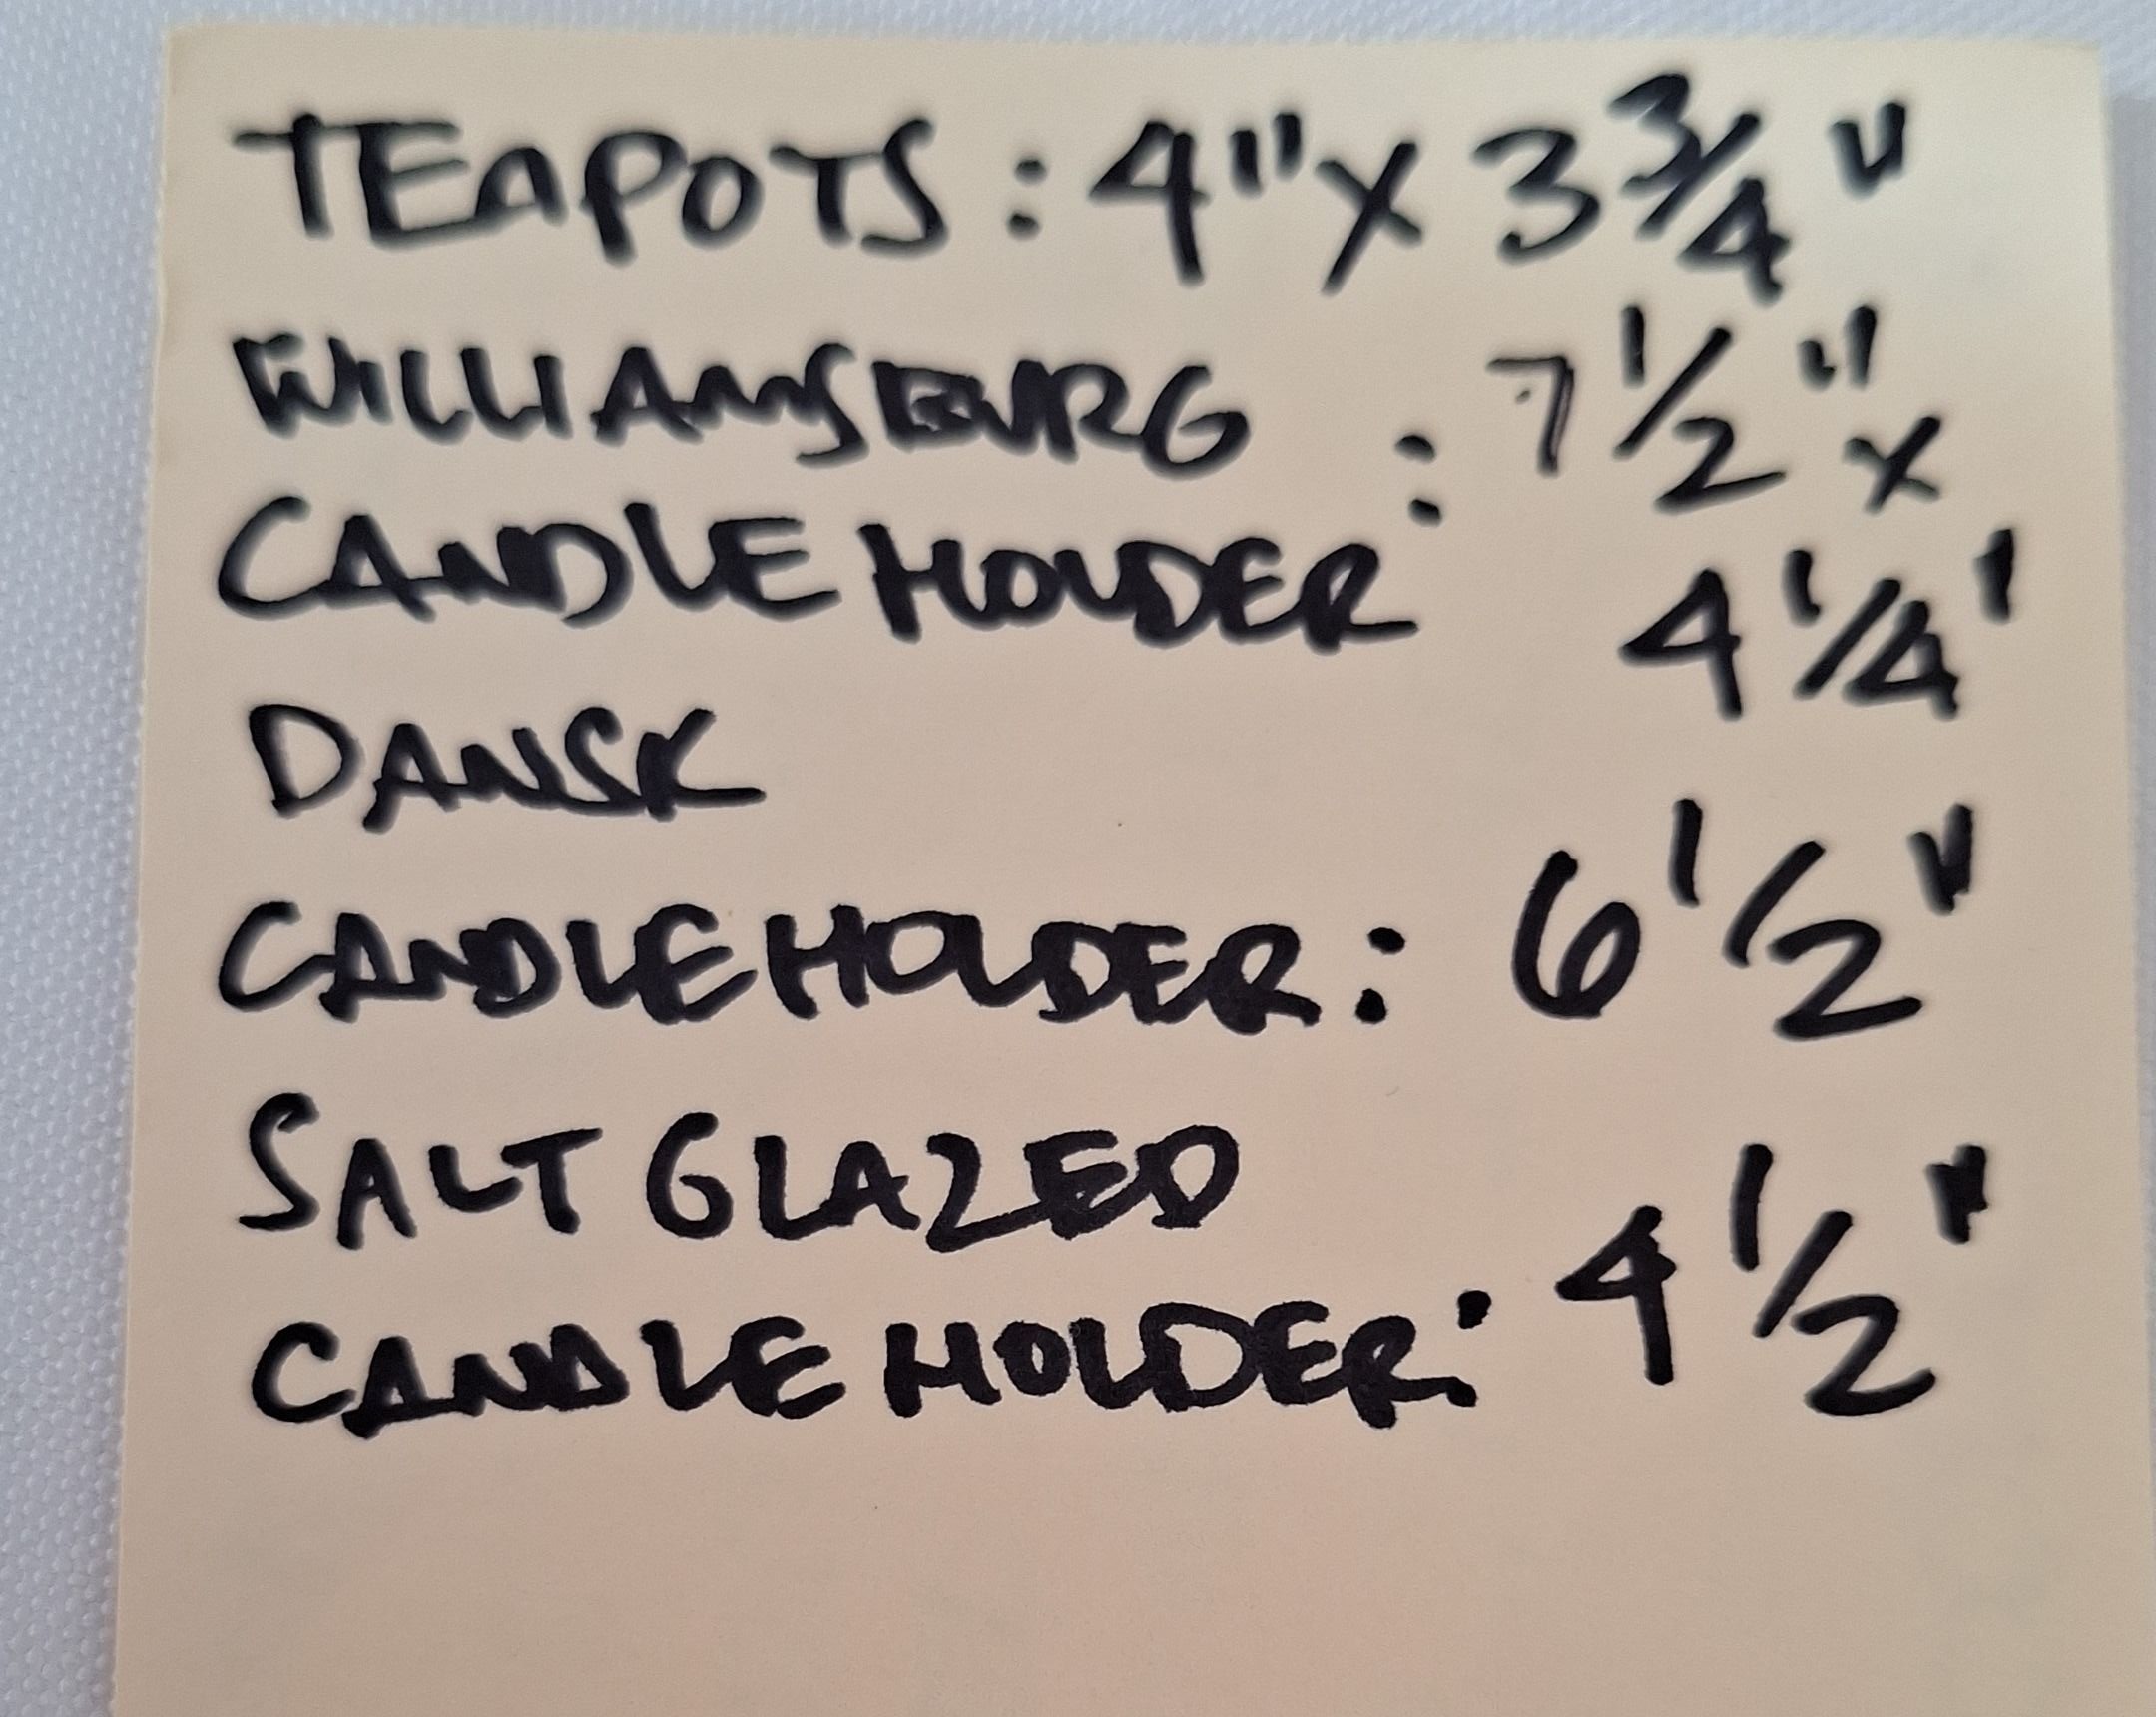 TEAPOTS: 4" x 3 3/4"
WILLIAMSBURG : 7 1/2" x
CANDLE HOLDER 4 1/4'
DANSK
CANDLE HOLDER: 6 1/2"
SALT GLAZED
CANDLE HOLDER: 4 1/2"